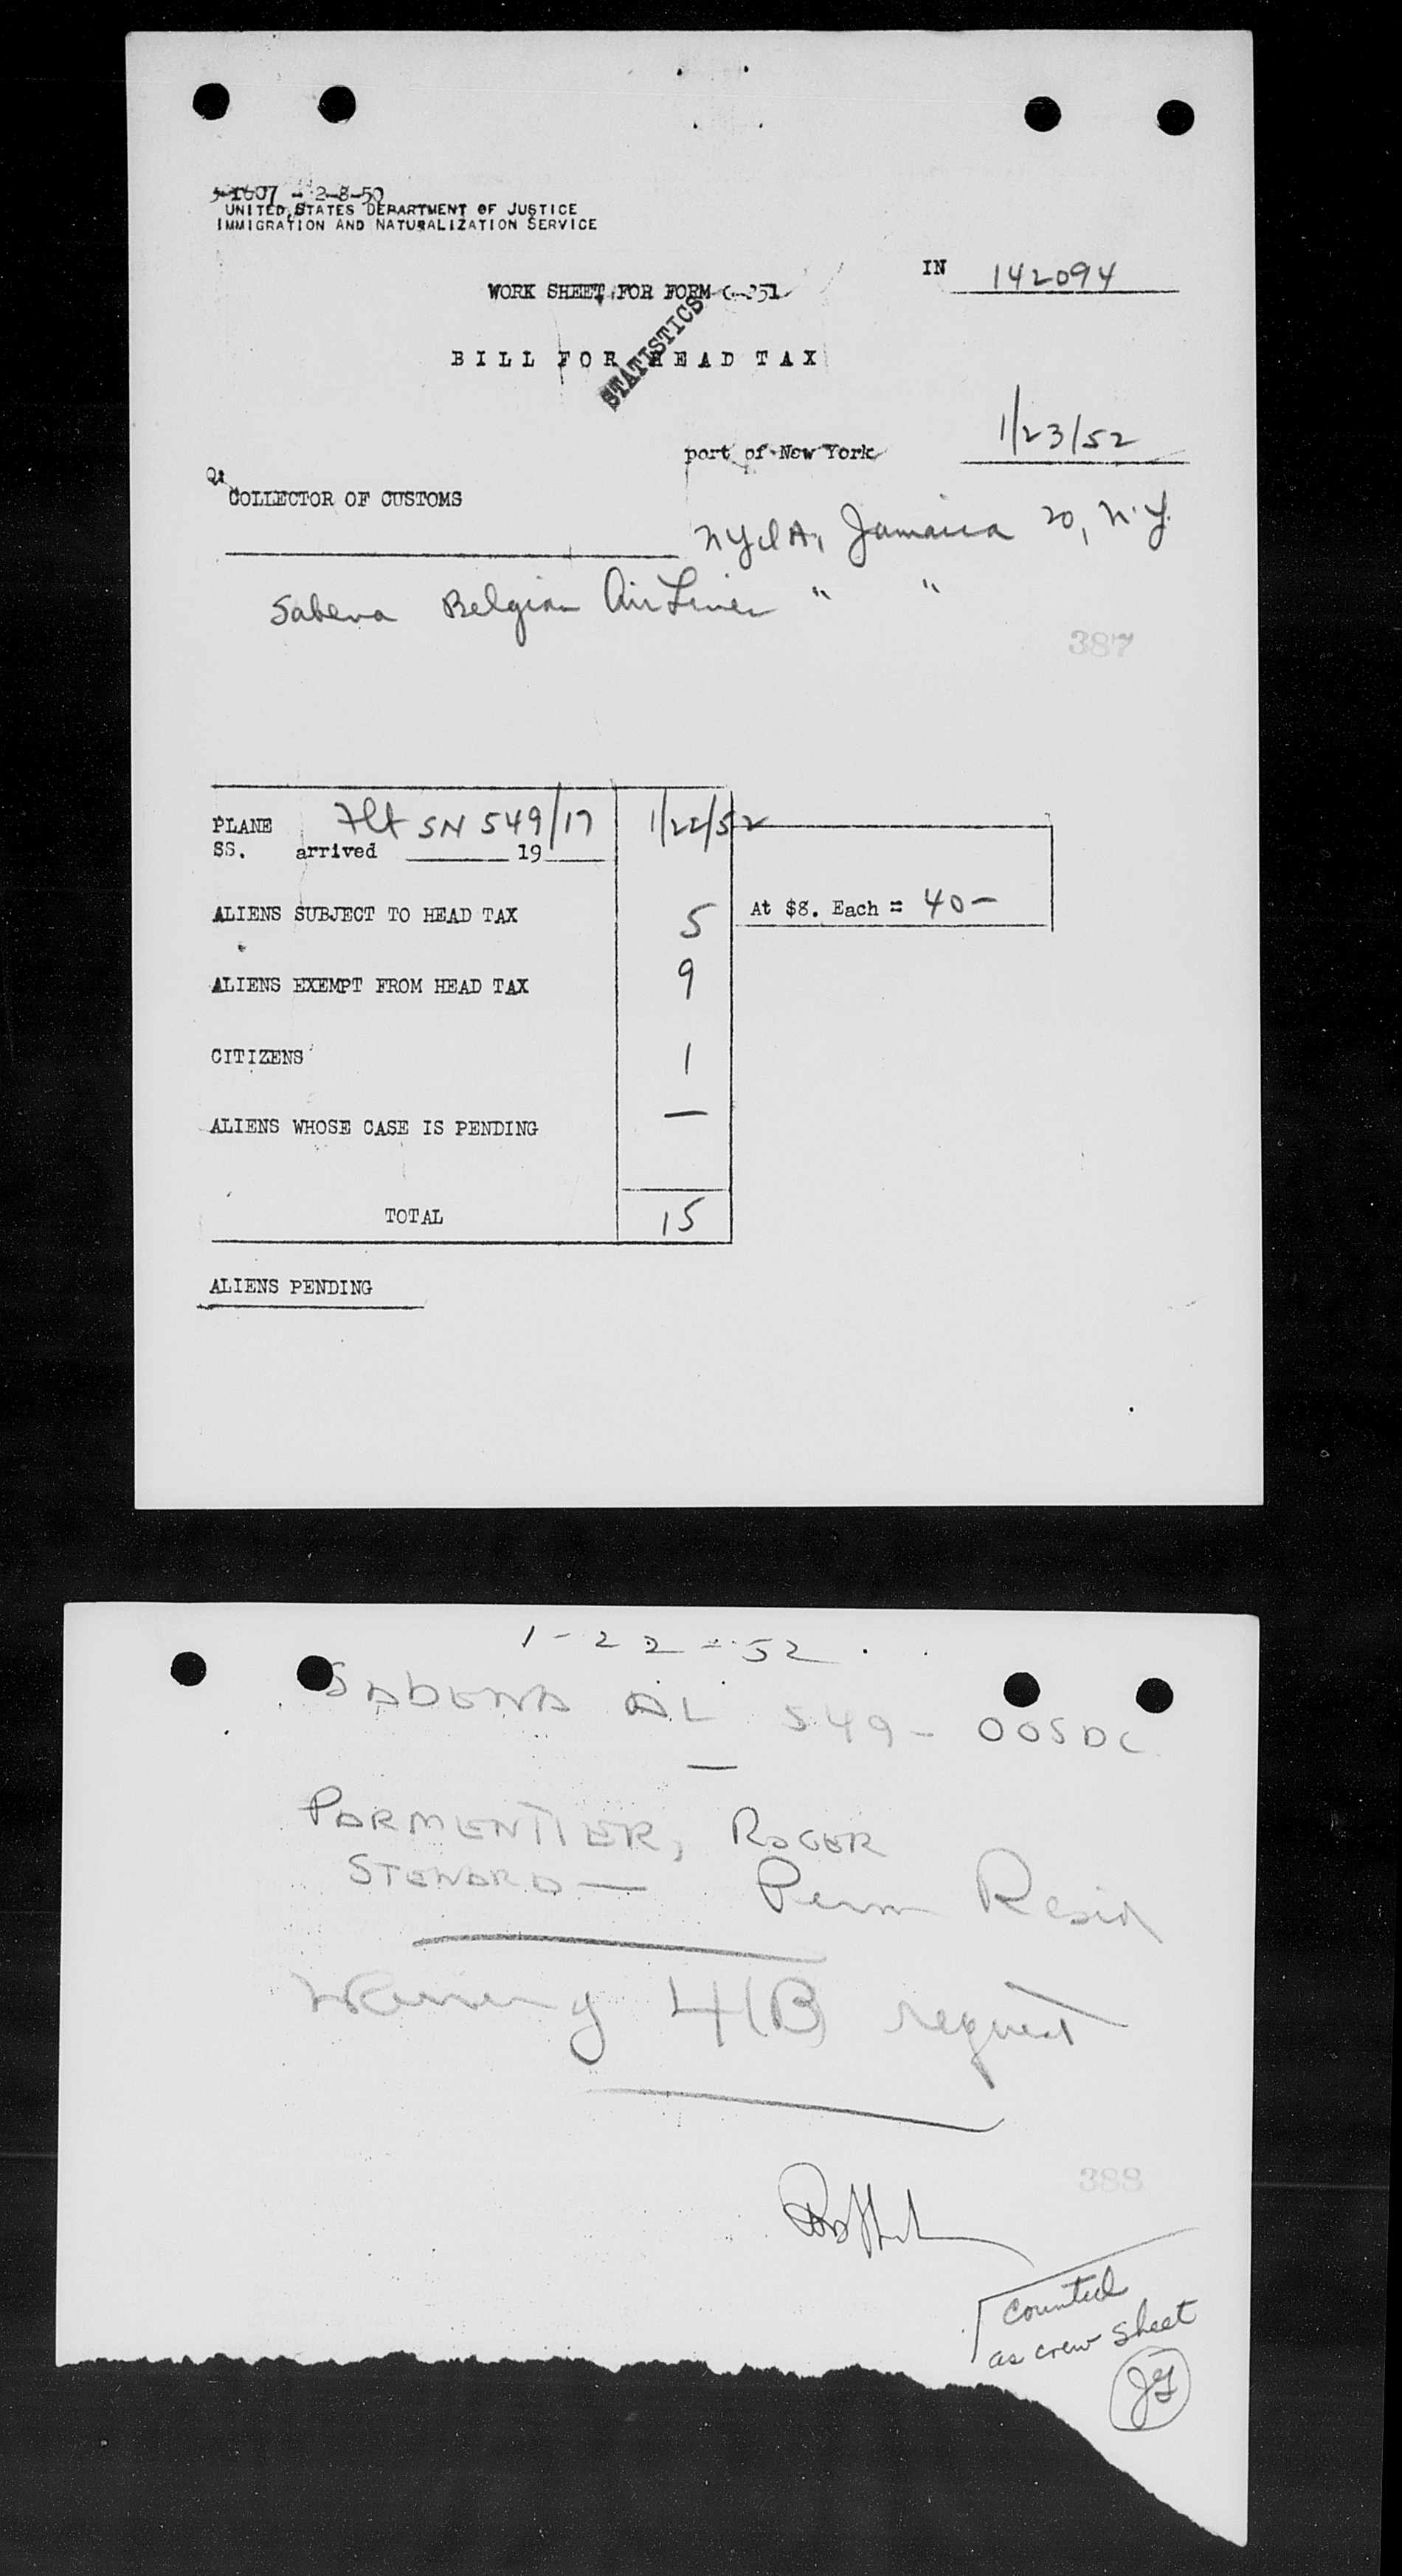 3-1607 - 2-8-50
UNITED STATES DEPARTMENT OF JUSTICE
IMMIGRATION AND NATURALIZATION SERVICE
IN 142094
WORK SHEET FOR FORM G-251
STATISTICS
BILL FOR HEAD TAX
port of New York 1/23/52
COLLECTOR OF CUSTOMS
NYIA, Jamaica 20, N.Y.
Sabena Belgian Air Lines " "
387
PLANE Flt SN 549/17 1/22/52
SS. arrived 19
ALIENS SUBJECT TO HEAD TAX 5 At $8. Each = 40-
ALIENS EXEMPT FROM HEAD TAX 9
CITIZENS 1
ALIENS WHOSE CASE IS PENDING —
TOTAL 15
ALIENS PENDING
1-22-52
SABENA AL 549- OOSDC
PARMENTIER, ROGER
STEWARD — Perm Resid
4(B) request
388
Counted
as crew sheet
JG